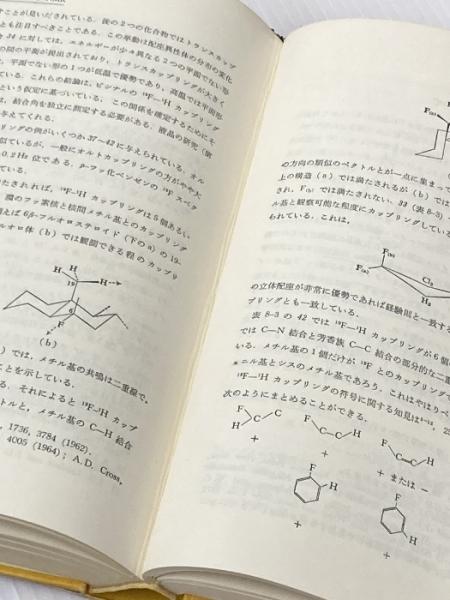 すことが見いだされている. 後の2つの化合物ではトランスカップ
も注目すべきことである. この挙動は配座異性体の分布の変化
34 に対しては, エネルギーが少々異なる2つの平面でない形
の間の平衡が提出されており, トランスカップリングが大きく
, 平面でない形の1つが低温で優勢であり, 高温では平面形
ている. これらの結論は, ビシナルの ¹⁹F—¹H カップリング
という仮定に基づいている. この関係を確定するためにそ
は, 結合角を独立に測定する必要がある. 液晶の研究
与えてくれる.
リングの例がいくつか 37~42 に与えられている. オル
似ているが, 一般にオルトカップリングの方がやや大
0.2 Hz 位である. p-フッ化ベンゼンの ¹⁹F スペク
たされれば, ¹⁹F—¹H カップリングは5個あるい
隣のフッ素核と核間メチル基とのカップリング
例えば 6β-フルオロステロイド (下の a) の 19-
ルオロ体 (b) では観測できる程のカップリ
H H
19
H
6
F
(b)
では, メチル基の共鳴は二重線で,
ことを示している.
る. それによると ¹⁹F—¹H カップ
トルと, メチル基の C—H 結合
, 1736, 3784 (1962).
4005 (1964) ; A.D. Cross,
F(a)
の方向の類似のベクトルとが一点に集まって
上の構造 (a) では満たされるが (b) では
され, F(b) では満たされない. 33 (表 8-3)
ル基と観察可能な程度にカップリングしている
られている. これは,
F(b)
F(a)
C₂
H₄
の立体配座が非常に優勢であれば経験則と一致する
プリングとも一致している.
表 8-3 の 42 では ¹⁹F—¹H カップリングが 6 個
では C—N 結合と芳香族 C—C 結合の部分的な二重
いる. メチル基の1個だけが ¹⁹F とのカップリング
ェニル基とシスのメチル基であろう. これはやはりベ
¹⁹F—¹H カップリングの符号に関する知見は
次のようにまとめることができる.
F C C H
+
F C C H
+
F C C H
+ または −
F H
+
F H
+